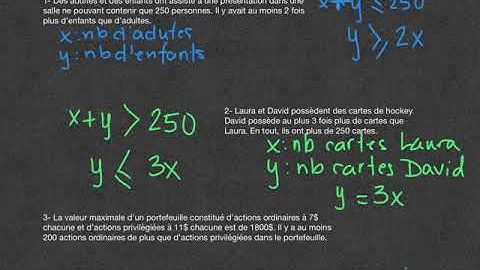 1- Des adultes et des enfants ont assisté à une présentation dans une
salle ne pouvant contenir que 250 personnes. Il y avait au moins 2 fois
plus d'enfants que d'adultes.
x: nb d'adutes
y: nb d'enfants
x+y ≤ 250
y ⩾ 2x
2- Laura et David possèdent des cartes de hockey.
David possède au plus 3 fois plus de cartes que
Laura. En tout, ils ont plus de 250 cartes.
x: nb cartes Laura
y: nb cartes David
y = 3x
x+y > 250
y ⩽ 3x
3- La valeur maximale d'un portefeuille constitué d'actions ordinaires à 7$
chacune et d'actions privilégiées à 11$ chacune est de 1800$. Il y a au moins
200 actions ordinaires de plus que d'actions privilégiées dans le portefeuille.